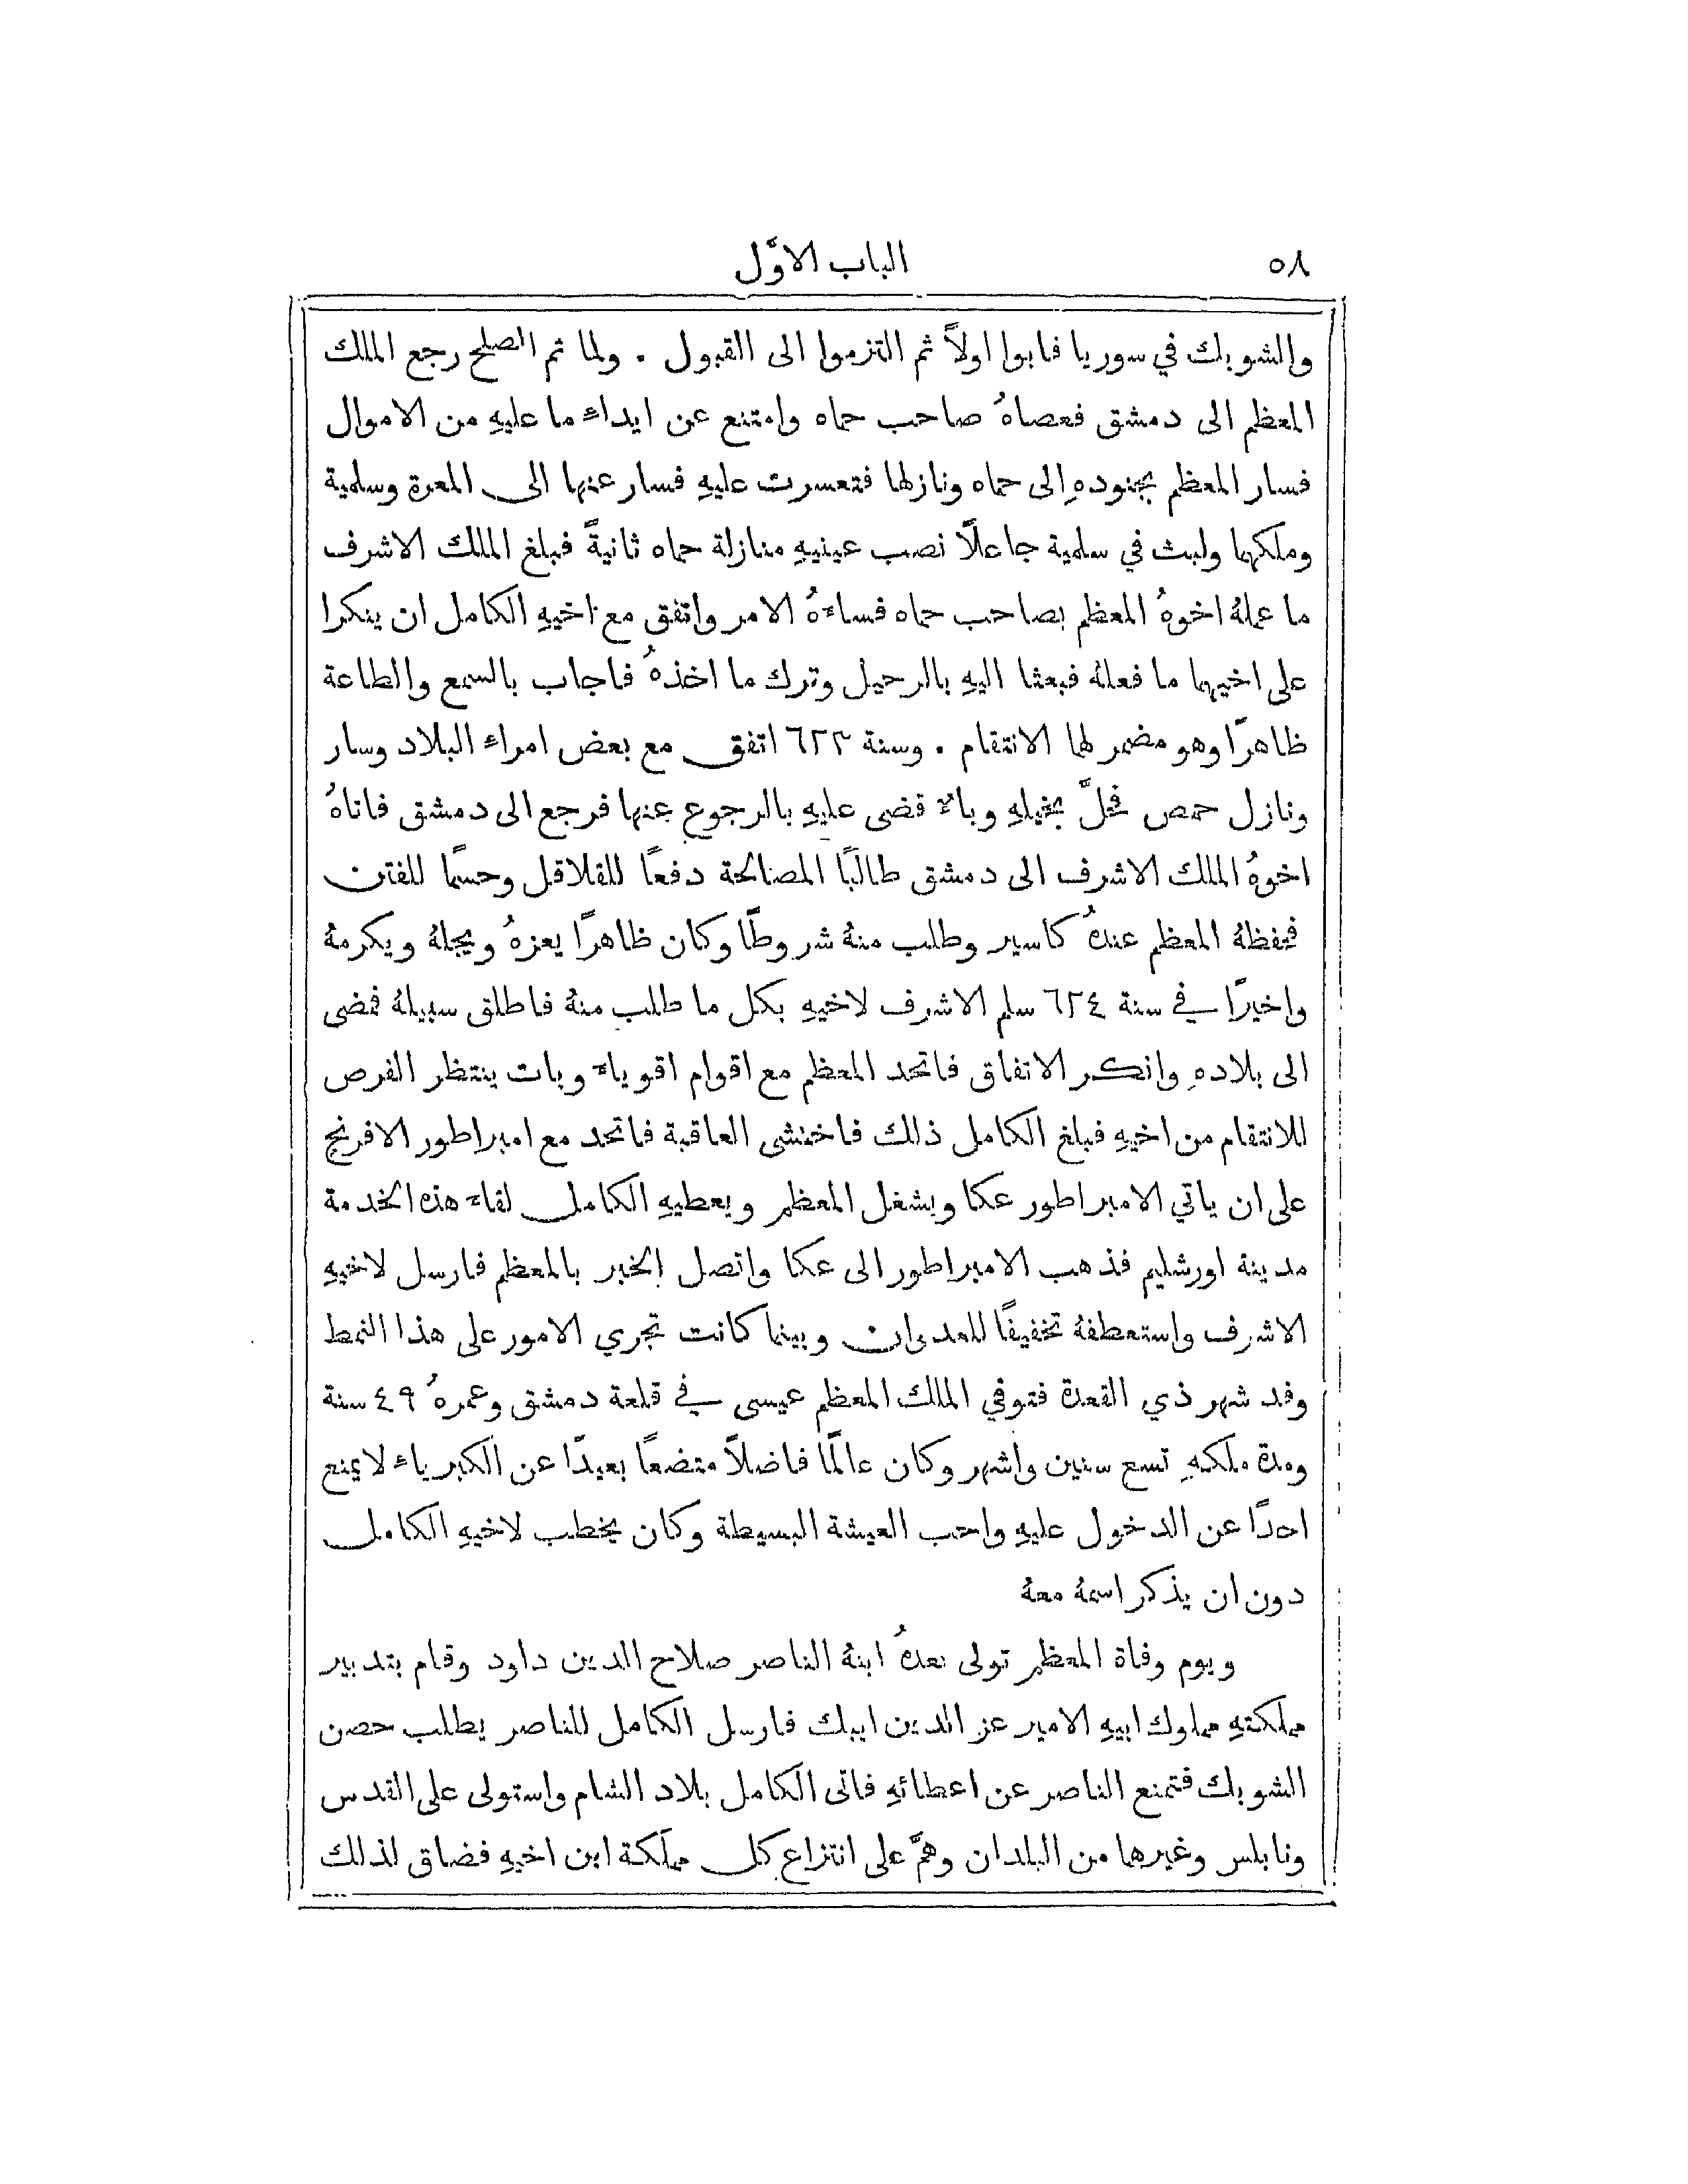 ٥٨
الباب الاوَّل
والشوبك في سوريا فابوا اولاً ثم التزموا الى القبول . ولما تم الصلح رجع الملك
المعظم الى دمشق فعصاهُ صاحب حماه وامتنع عن ايداء ما عليهِ من الاموال
فسار المعظم بجنودهِ الى حماه ونازلها فتعسرت عليهِ فسار عنها الى المعرة وسلمية
وملكها ولبث في سلمية جاعلاً نصب عينيهِ منازلة حماه ثانيةً فبلغ الملك الاشرف
ما عملهُ اخوهُ المعظم بصاحب حماه فساءهُ الامر واتفق مع اخيهِ الكامل ان ينكرا
على اخيهما ما فعلهُ فبعثا اليهِ بالرحيل وترك ما اخذهُ فاجاب بالسمع والطاعة
ظاهرًا وهو مضمر لها الانتقام . وسنة ٦٢٣ اتفق مع بعض امراء البلاد وسار
ونازل حمص فحلَّ بخيلهِ وباء قضى عليهِ بالرجوع عنها فرجع الى دمشق فاتاهُ
اخوهُ الملك الاشرف الى دمشق طالبًا المصالحة دفعًا للقلاقل وحسمًا للفتن
فحفظهُ المعظم عندهُ كاسير وطلب منهُ شروطًا وكان ظاهرًا يعزهُ ويجلهُ ويكرمهُ
واخيرًا في سنة ٦٢٤ سلم الاشرف لاخيهِ بكل ما طلب منهُ فاطلق سبيلهُ فمضى
الى بلادهِ وانكر الاتفاق فاتحد المعظم مع اقوام اقوياء وبات ينتظر الفرص
للانتقام من اخيهِ فبلغ الكامل ذلك فاختشى العاقبة فاتحد مع امبراطور الافرنج
على ان ياتي الامبراطور عكا ويشغل المعظم ويعطيهِ الكامل لقاء هذه الخدمة
مدينة اورشليم فذهب الامبراطور الى عكا واتصل الخبر بالمعظم فارسل لاخيهِ
الاشرف واستعطفهُ تخفيفًا للعدوان وبينما كانت تجري الامور على هذا النمط
وفد شهر ذي القعدة فتوفي الملك المعظم عيسى في قلعة دمشق وعمرهُ ٤٩ سنة
ومدة ملكهِ تسع سنين واشهر وكان عالمًا فاضلاً متضعًا بعيدًا عن الكبرياء لا يمنع
احدًا عن الدخول عليهِ واحب العيشة البسيطة وكان يخطب لاخيهِ الكامل
دون ان يذكر اسمهُ معهُ
ويوم وفاة المعظم تولى بعدهُ ابنهُ الناصر صلاح الدين داود وقام بتدبير
مملكتهِ مملوك ابيهِ الامير عز الدين ايبك فارسل الكامل للناصر يطلب حصن
الشوبك فتمنع الناصر عن اعطائهِ فاتى الكامل بلاد الشام واستولى على القدس
ونابلس وغيرها من البلدان وهمَّ على انتزاع كل مملكة ابن اخيهِ فضاق لذلك